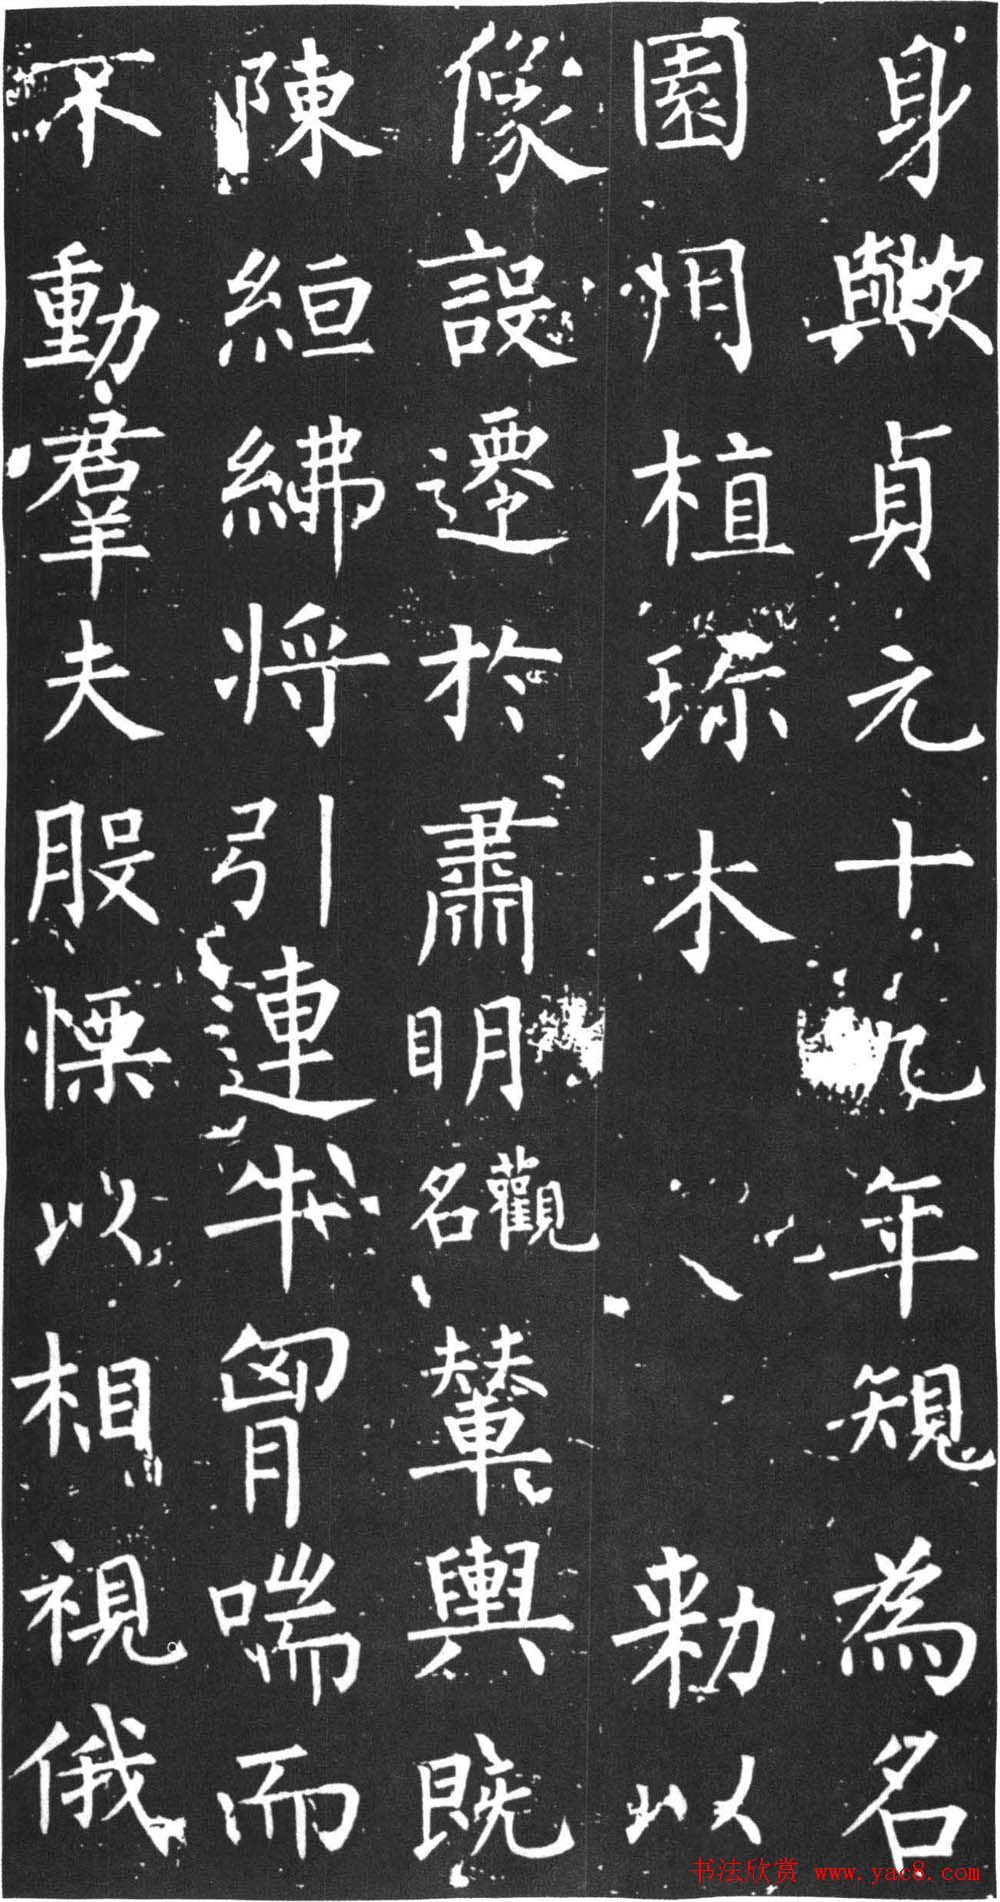 身歟貞元十九年規為名
園用植珎木敕以
像設遷於肅明觀名輦輿既
陳絙紼將引連牛胷喘而
不動羣夫股慄以相視俄
书法欣赏 www.yac8.com